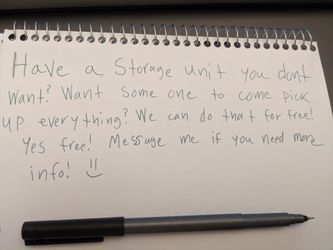 Have a Storage unit you dont
Want? Want some one to come pick
up everything? We can do that for free!
Yes free! Message me if you need more
info! :)